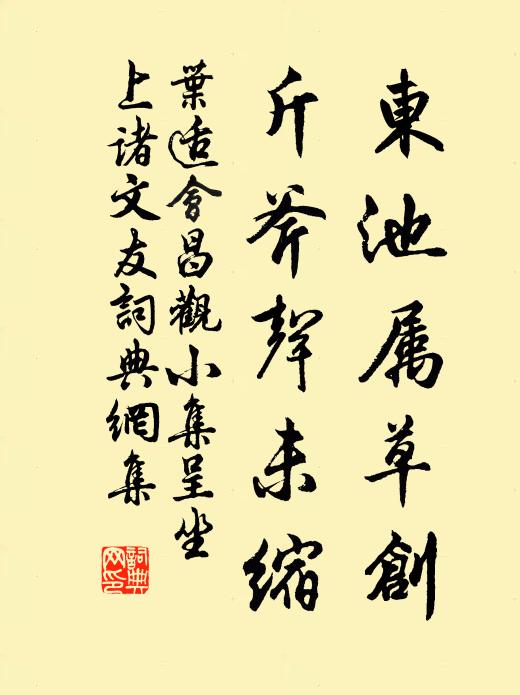 東池属草創
斤斧聲未縮
葉适會昌觀小集呈坐
上诸文友詞典網集
詞典网印